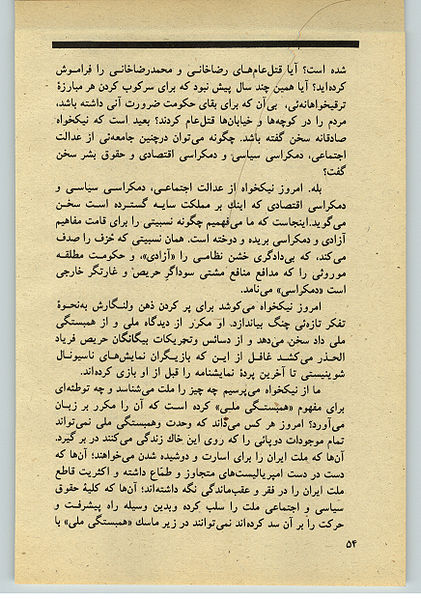 شده است؟ آیا قتل‌عام‌های رضاخانی و محمدرضاخانی را فراموش
کرده‌اید؟ آیا همین چند سال پیش نبود که برای سرکوب کردن هر مبارزهٔ
ترقیخواهانه‌ئی، بی‌آن که برای بقای حکومت ضرورت آنی داشته باشد،
مردم را در کوچه‌ها و خیابان‌ها قتل‌عام کردند؟ بعید است که نیکخواه
صادقانه سخن گفته باشد. چگونه می‌توان درچنین جامعه‌ئی از عدالت
اجتماعی، دمکراسی سیاسی و دمکراسی اقتصادی و حقوق بشر سخن
گفت؟
بله. امروز نیکخواه از عدالت اجتماعی، دمکراسی سیاسی و
دمکراسی اقتصادی که اینك بر مملکت سایه گسترده است سخن
می‌گوید. اینجاست که ما می‌فهمیم چگونه نسبیتی را برای قامت مفاهیم
آزادی و دمکراسی بریده و دوخته است. همان نسبیتی که خزف را صدف
می‌کند، که بی‌دادگری خشن نظامی را «آزادی»، و حکومت مطلقه
موروثی را که مدافع منافع مشتی سوداگر حریص و غارتگر خارجی
است «دمکراسی» می‌نامد.
امروز نیکخواه می‌کوشد برای پر کردن ذهن ولنگارش به‌نحوهٔ
تفکر تازه‌ئی چنگ بیاندازد. او مکرر از دیدگاه ملی و از همبستگی
ملی داد سخن می‌دهد و از دسائس وتحریکات بیگانگان حریص فریاد
الحذر می‌کشد غافل از این که بازیگران نمایش‌های ناسیونال
شوینیستی تا آخرین پردهٔ نمایشنامه را قبل از او بازی کرده‌اند.
ما از نیکخواه می‌پرسیم چه چیز را ملت می‌شناسد و چه توطئه‌ای
برای مفهوم «همبستگی ملی» کرده است که آن را مکرر بر زبان
می‌آورد؟ امروز هر کس می‌داند که وحدت وهمبستگی ملی نمی‌تواند
تمام موجودات دوپائی را که روی این خاك زندگی می‌کنند در بر گیرد.
آن‌ها که ملت ایران را برای اسارت و دوشیده شدن می‌خواهند؛ آن‌ها که
دست در دست امپریالیست‌های متجاوز و طماع داشته و اکثریت قاطع
ملت ایران را در فقر و عقب‌ماندگی نگه داشته‌اند؛ آن‌ها که کلیهٔ حقوق
سیاسی و اجتماعی ملت را سلب کرده وبدین وسیله راه پیشرفت و
حرکت را بر آن سد کرده‌اند نمی‌توانند در زیر ماسك «همبستگی ملی» با
۵۴